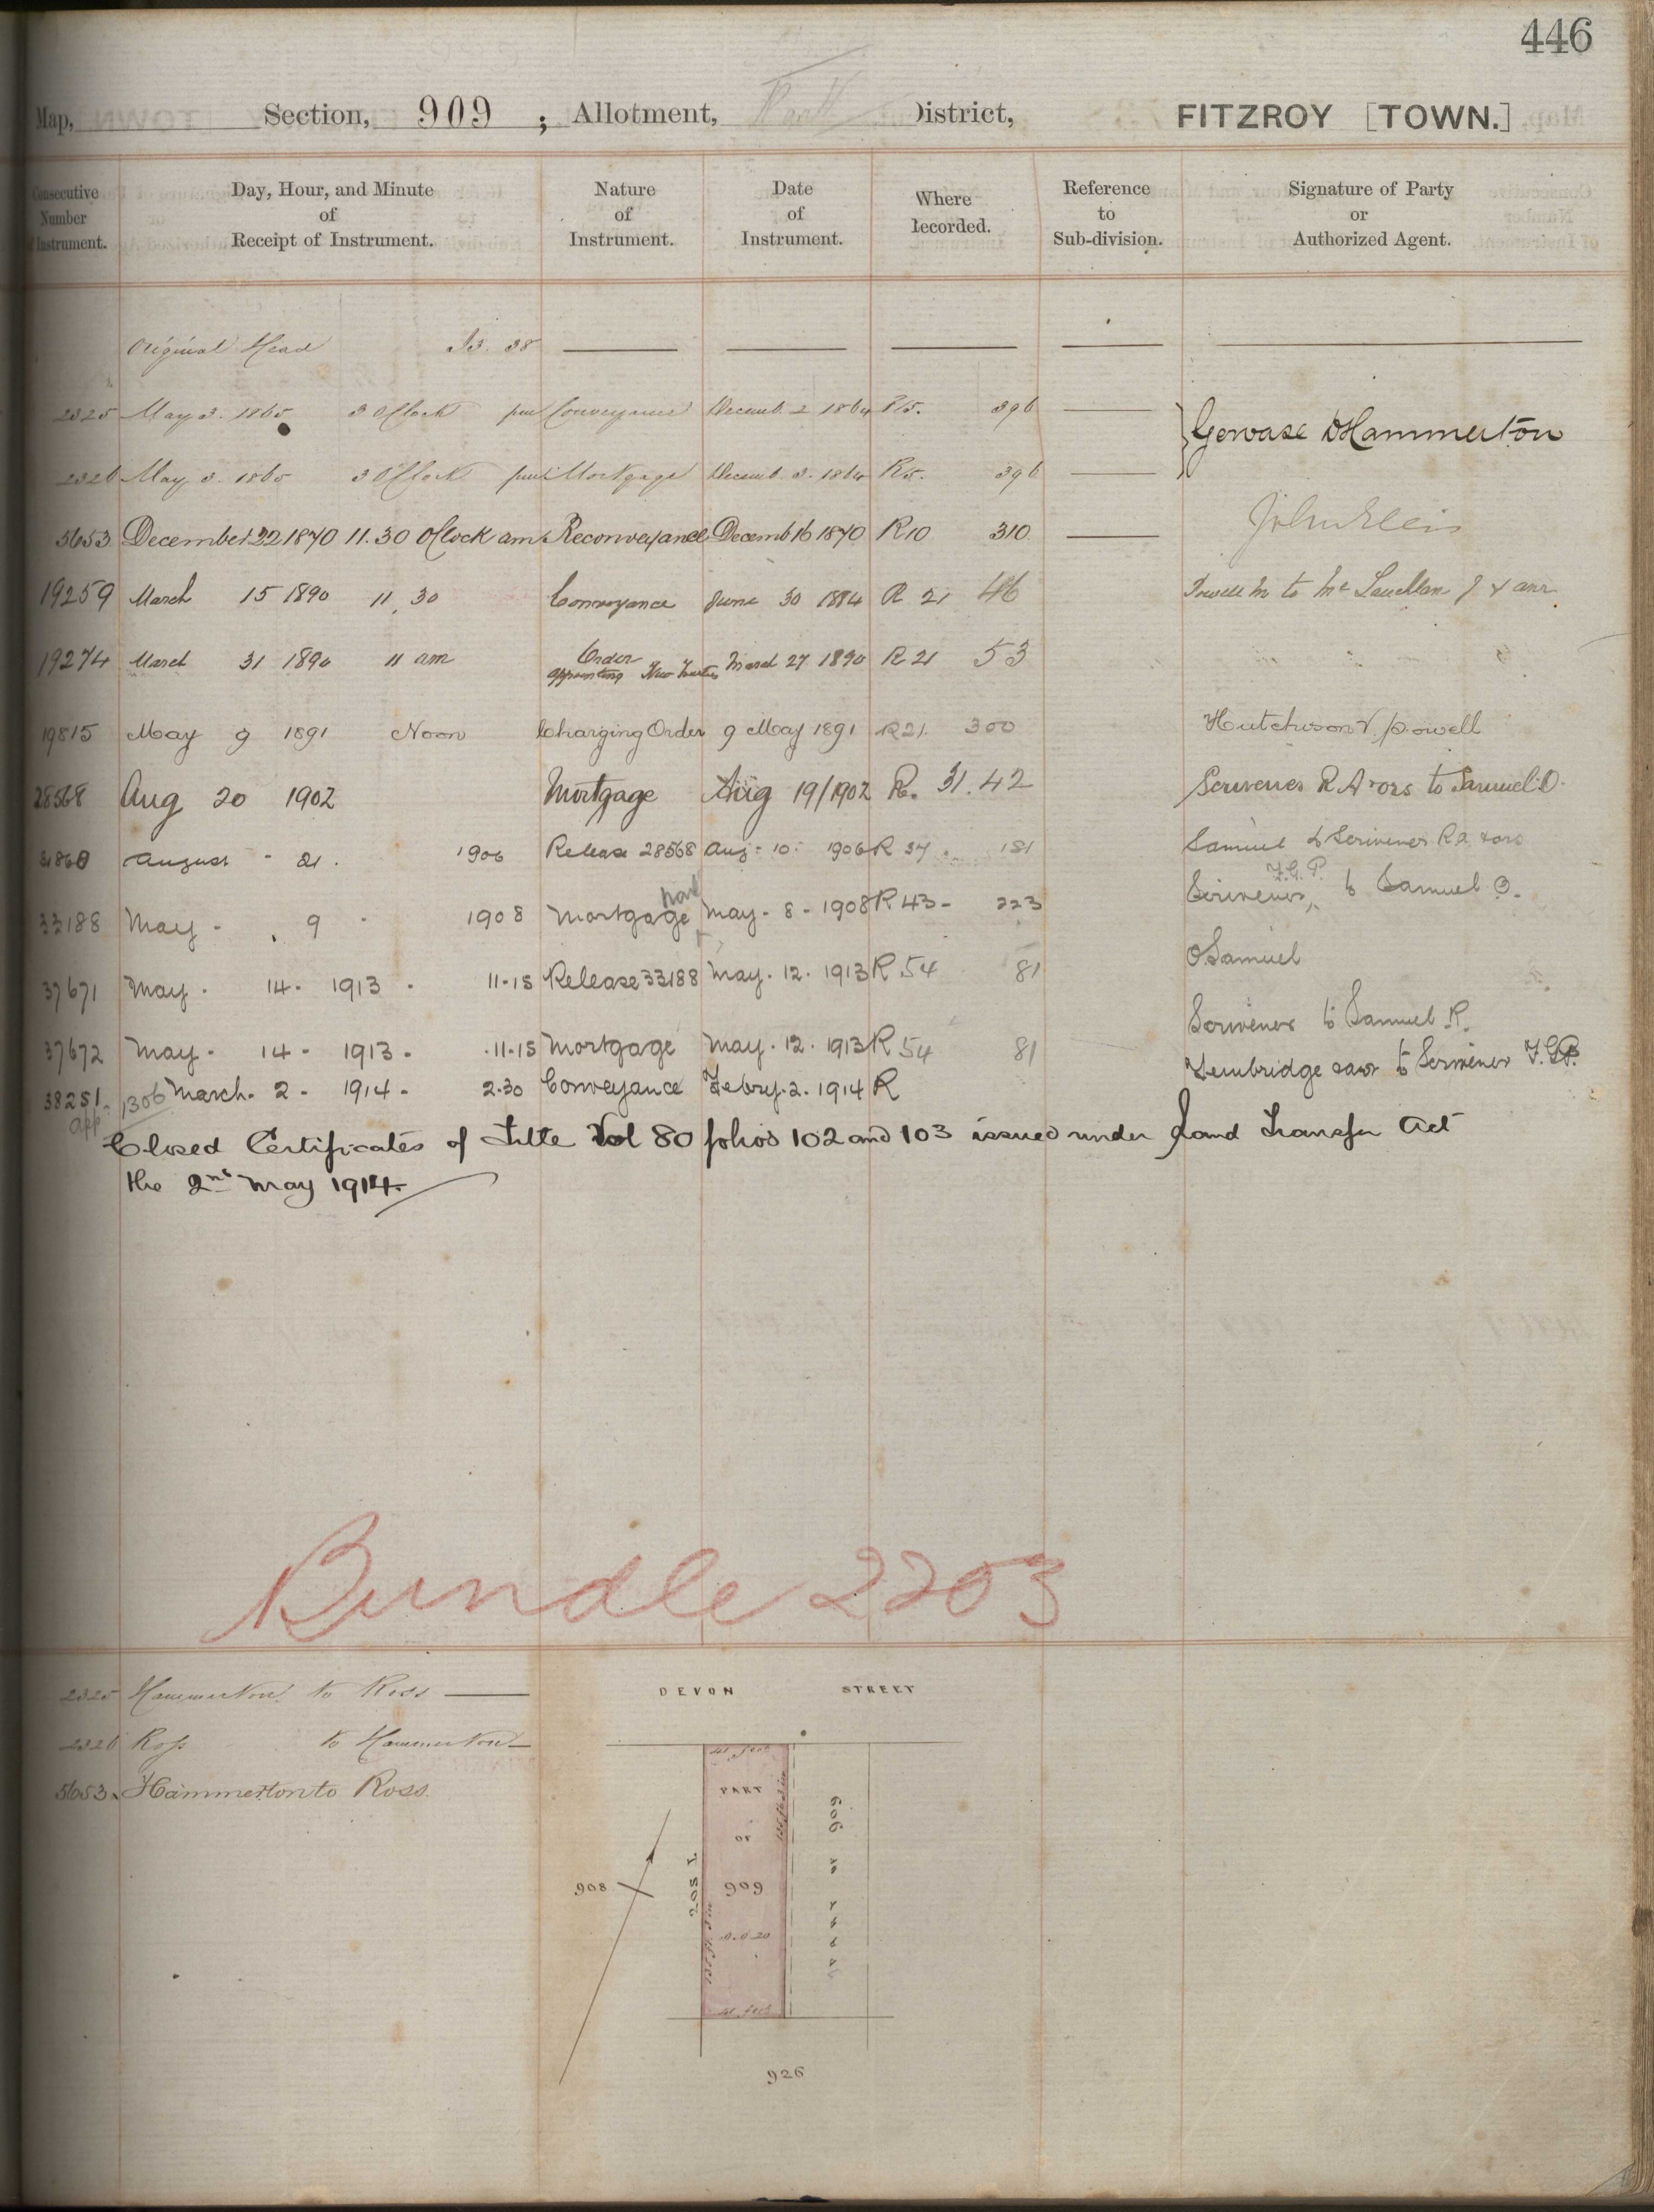 446
Map, Section, 909 ; Allotment, Part District, FITZROY [TOWN.]
Consecutive Number of Instrument.
Day, Hour, and Minute of Receipt of Instrument.
Nature of Instrument.
Date of Instrument.
Where Recorded.
Reference to Sub-division.
Signature of Party or Authorized Agent.
Original Head 38
2325 May 3. 1865 3 OClock pm Conveyance Decemb. 2 1864 R5. 396 Gervase D Hammerton
2326 May 3. 1865 3 OClock pm Mortgage Decemb. 3. 1864 R5. 396
5653 December 22 1870 11.30 OClock am Reconveyance Decemb 16 1870 R10 310
19259 March 15 1890 11.30 Conveyance June 30 1884 R 21 46 to McLauchlan J & anr
19274 March 31 1890 11 am Order appointing New Trustees March 27 1890 R 21 53
19815 May 9 1891 Noon Charging Order 9 May 1891 R21. 300 Hutchison V. Powell
28568 Aug 20 1902 Mortgage Aug 19/1902 R. 31. 42 Scrivener R A & ors to Samuel O.
31860 August - 21. 1906 Release 28568 Aug - 10 - 1906 R 37. 181 Samuel to Scrivener R.A. & ors
33188 May - 9 - 1908 Mortgage part May - 8 - 1908 R 43 - 223 Scrivener F.G.P. to Samuel O.
37671 May - 14 - 1913 - 11-15 Release 33188 May. 12. 1913 R 54 81 O Samuel
37672 May - 14 - 1913 - 11-15 Mortgage May. 12. 1913 R 54 81 Scrivener to Samuel R.
38251 March - 2 - 1914 - 2.30 Conveyance Febry. 2. 1914 R to Scrivener F.G.P.
app 1306
Closed Certificates of Title Vol 80 folios 102 and 103 issued under Land Transfer Act
the 2nd May 1914.
Bundle 2203
2325 Hammerton to Ross
2326 Ross to Hammerton
5653. Hammerton to Ross
DEVON STREET
41 feet
PART
OF
909
0.0.20
41 feet
205 L
PART OF 909
908
926